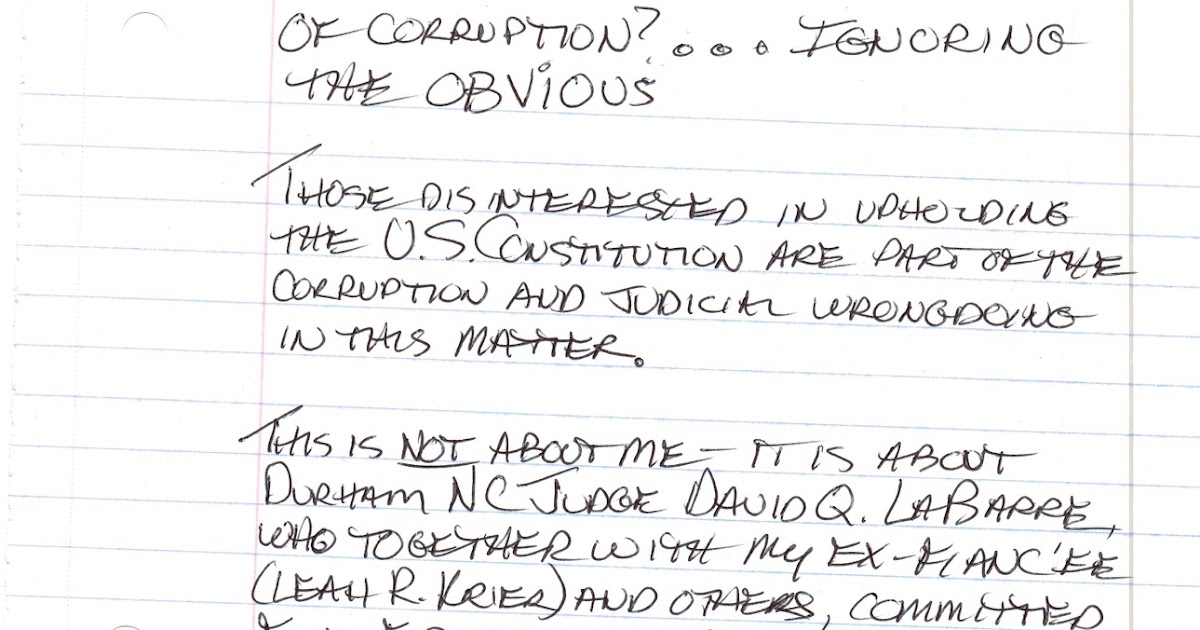 OF CORRUPTION? . . . IGNORING
THE OBVIOUS
THOSE DISINTERESTED IN UPHOLDING
THE U.S. CONSTITUTION ARE PART OF THE
CORRUPTION AND JUDICIAL WRONGDOING
IN THIS MATTER.
THIS IS NOT ABOUT ME – IT IS ABOUT
DURHAM NC JUDGE DAVID Q. LABARRE,
WHO TOGETHER WITH MY EX-FIANC'EE
(LEAH R. KRIER) AND OTHERS, COMMITTED